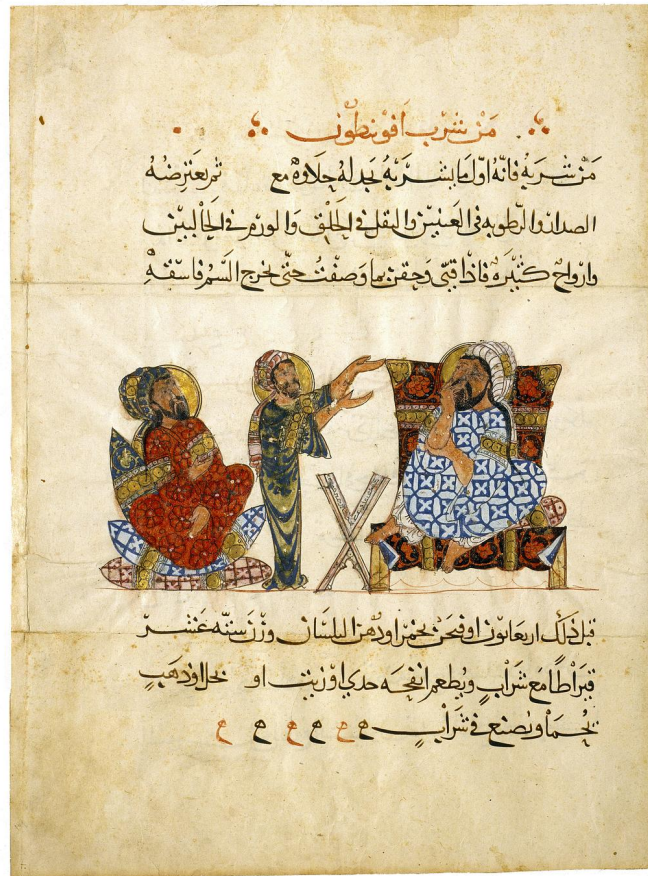 من شرب افونيطون
من شربه فانه اول ما يشربه يجد له حلاوة مع ثم يعترضه
الصداع والرطوبه في العينين والثقل في الحلق والورم في الحالبين
وارواح كثيره فاذا قيى وحقن بما وصفت حتى يخرج السم فاسقه
قبل ذلك او بخمر او دهن البلسان وزن سته عشر
قيراطا مع شراب ويطعم انفحه جدي او زيت او خل او
ويصنع في شراب